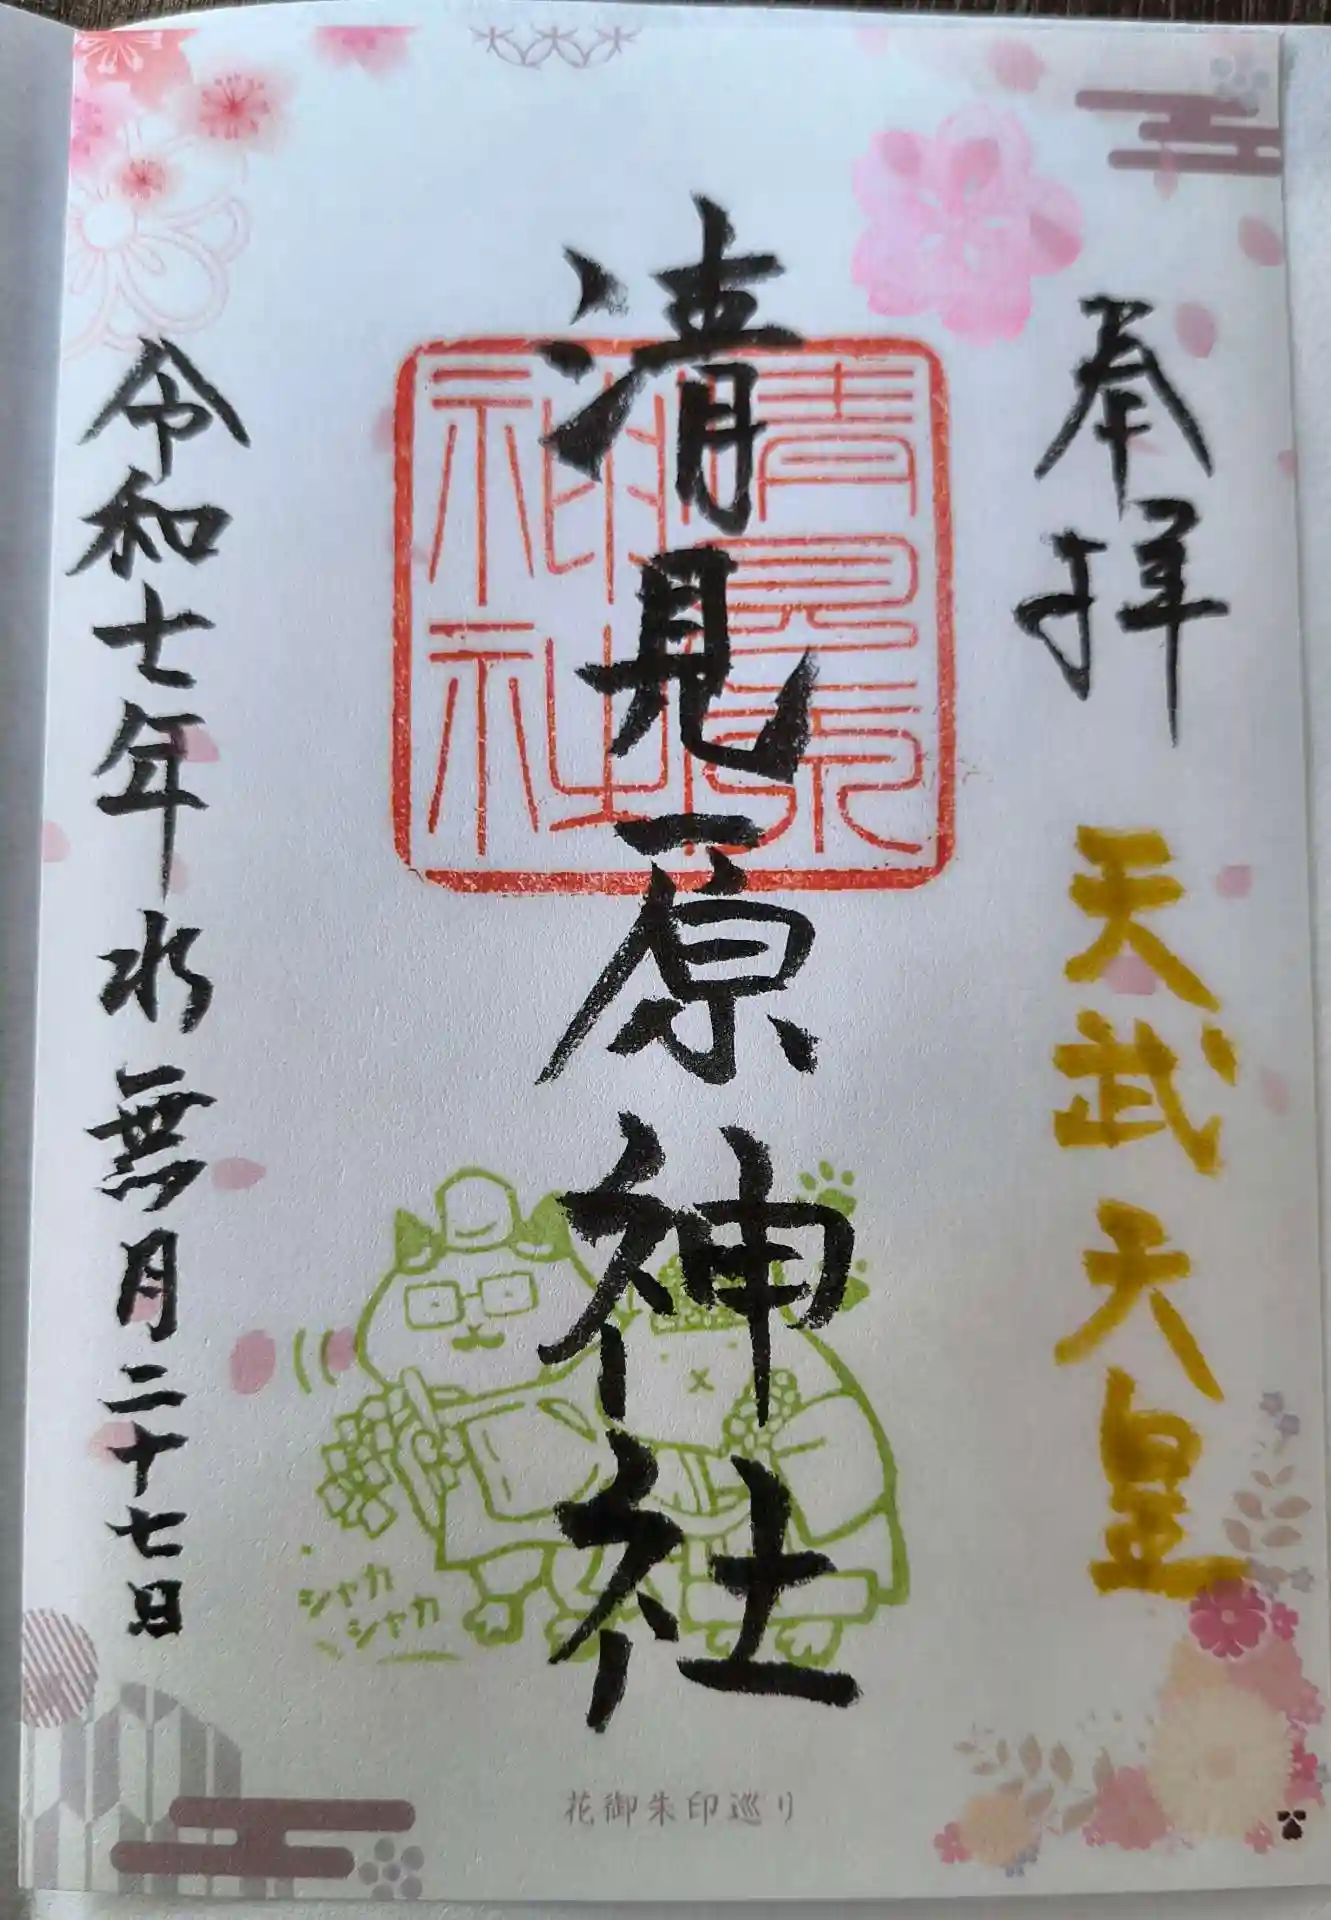 奉拝
天武天皇
清見原神社
清見原
神社
令和七年水無月二十七日
シャカ
シャカ
花御朱印巡り